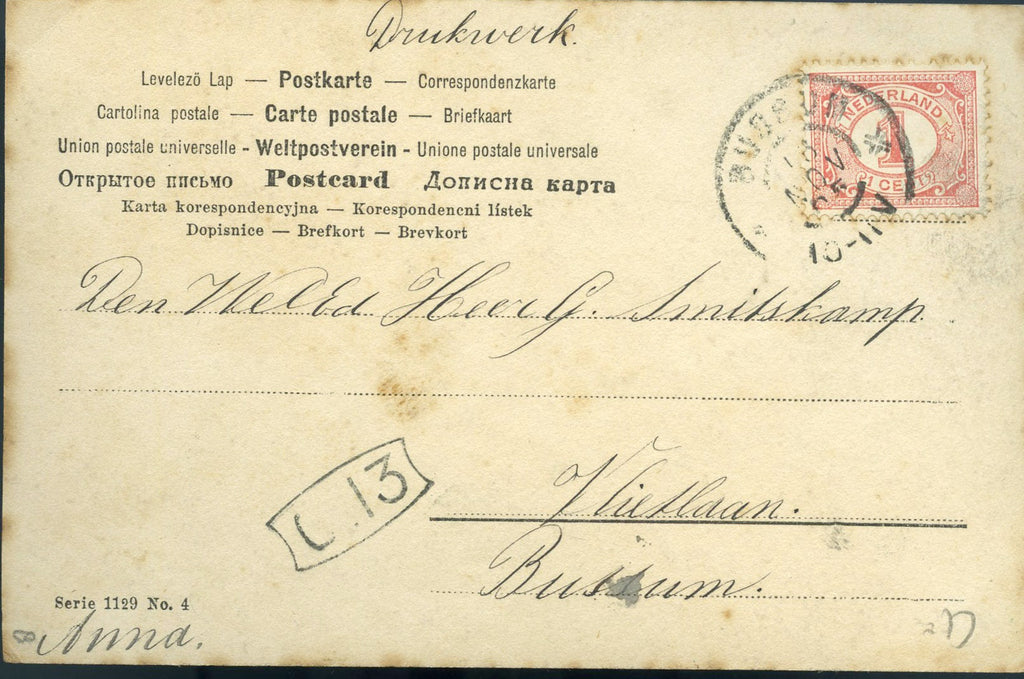 Drukwerk.
Levelező Lap — Postkarte — Correspondenzkarte
Cartolina postale — Carte postale — Briefkaart
Union postale universelle - Weltpostverein - Unione postale universale
Открытое письмо Postcard Дописна карта
Karta korespondencyjna — Korespondencni lístek
Dopisnice — Brefkort — Brevkort
NEDERLAND
1
1 CENT
BUSSUM
NOV
10-11V
Den WelEd Heer G. Smitskamp
C.13
Vlietlaan.
Bussum.
Serie 1129 No. 4
Anna.
8